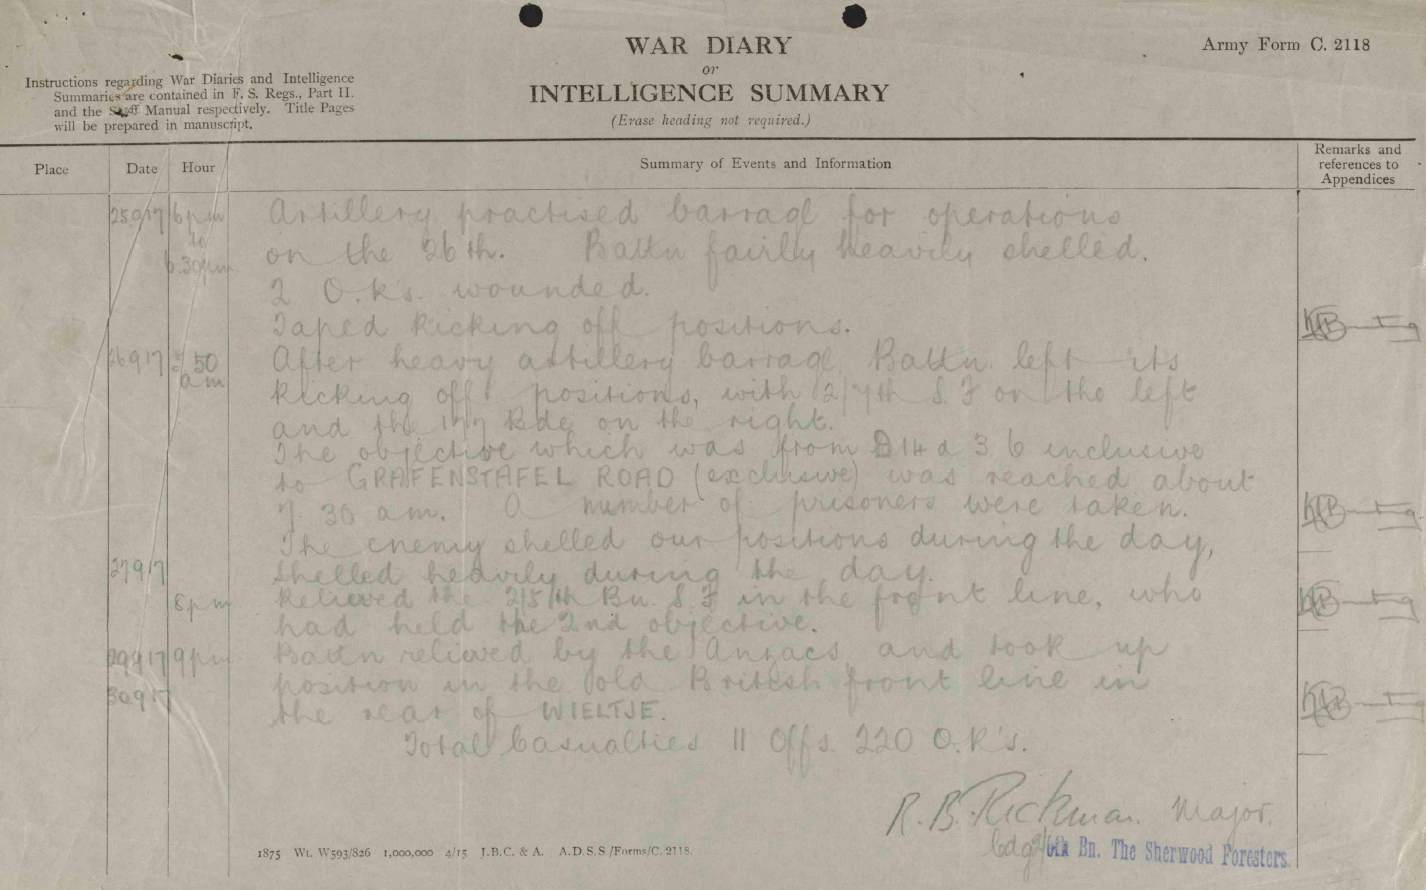 WAR DIARY
or
INTELLIGENCE SUMMARY
(Erase heading not required.)
Army Form C. 2118
Instructions regarding War Diaries and Intelligence
Summaries are contained in F. S. Regs., Part II.
and the Staff Manual respectively. Title Pages
will be prepared in manuscript.
Place Date Hour Summary of Events and Information Remarks and references to Appendices
25917 6pm Artillery practised barrage for operations
to on the 26th. Battn fairly heavily shelled.
6.30pm 2 O.R's. wounded.
Taped kicking off positions.
26917 5 50 After heavy artillery barrage Battn. left its
am kicking off positions, with 2/7th S.F on the left
and the 177 Bde on the right.
The objective which was from D14 d 3.6 inclusive
to GRAFENSTAFEL ROAD (exclusive) was reached about
7.30 am. A number of prisoners were taken.
The enemy shelled our positions during the day,
27917 Shelled heavily during the day.
8pm Relieved the 2/5th Bn. S.F in the front line, who
had held the 2nd objective.
29917 9pm Battn relieved by the Anzacs and took up
position in the old British front line in
30917 the rear of WIELTJE.
Total Casualties 11 Offs. 220 O.R's.
R.B. Rickman. Major.
Cdg 2/6th Bn. The Sherwood Foresters.
1875 Wt. W593/826 1,000,000 4/15 J.B.C. & A. A.D.S.S./Forms/C. 2118.